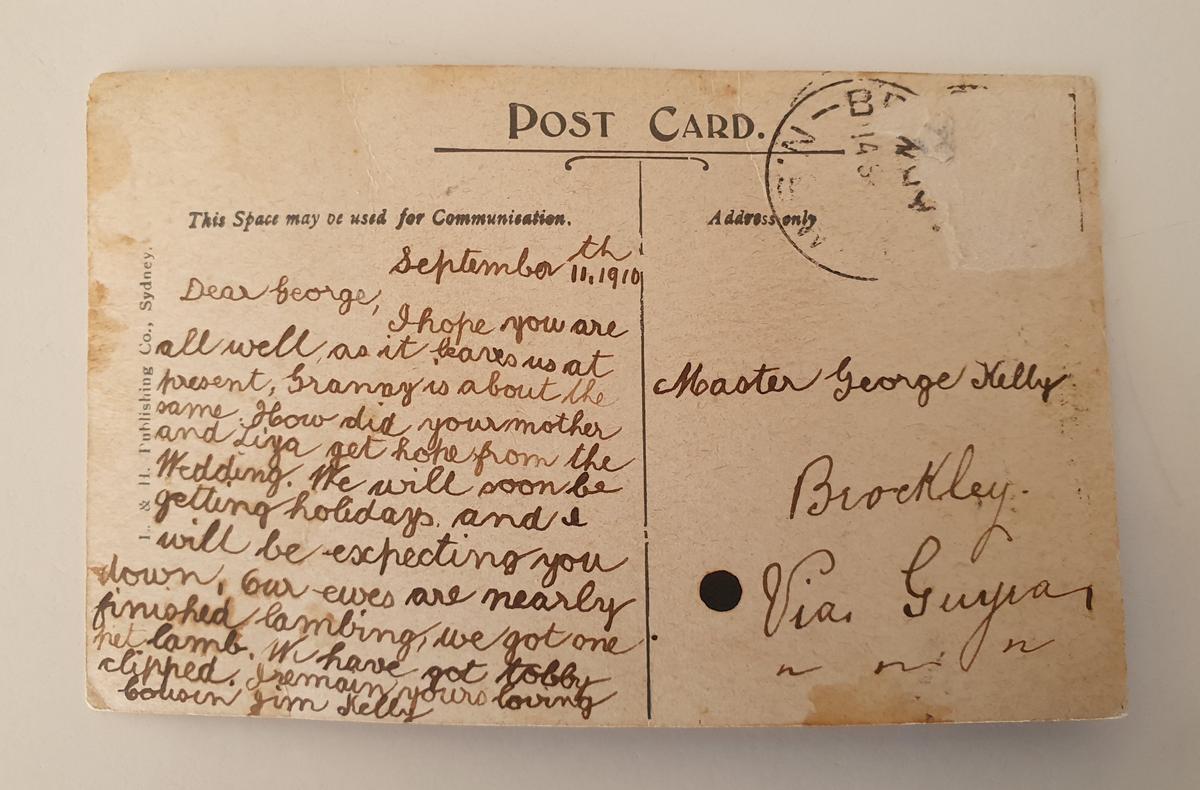 POST CARD.
This Space may be used for Communication.
Address only
L. & H. Publishing Co., Sydney.
September 11th, 1910
Dear George,
I hope you are
all well, as it leaves us at
present, Granny is about the
same. How did your mother
and Liya get hope from the
Wedding. We will soon be
getting holidays. and I
will be expecting you
down. Our ewes are nearly
finished lambing, we got one
pet lamb. We have got tobby
clipped. I remain yours loving
cousin Jim Kelly
Master George Kelly
Brockley.
Via. Guyra,